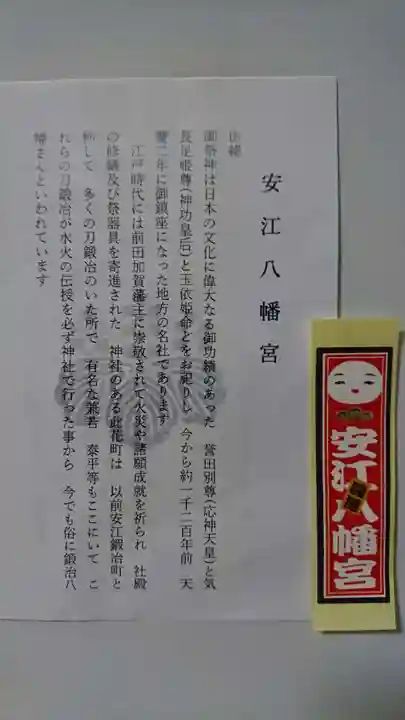 安江八幡宮
由緒
御祭神は日本の文化に偉大なる御功績のあった 誉田別尊(応神天皇)と気
長足姫尊(神功皇后)と玉依姫命とをお祀りし 今から約一千二百年前 天
慶二年に御鎮座になった地方の名社であります
江戸時代には前田加賀藩主に崇敬されて火災や諸願成就を祈られ 社殿
の修繕及び祭器具を寄進された 神社のある此花町は 以前安江鍛冶町と
称して 多くの刀鍛冶のいた所で 有名な兼若 泰平等もここにいて こ
れらの刀鍛冶が水火の伝授を必ず神社で行った事から 今でも俗に鍛冶八
幡さんといわれています
安江八幡宮